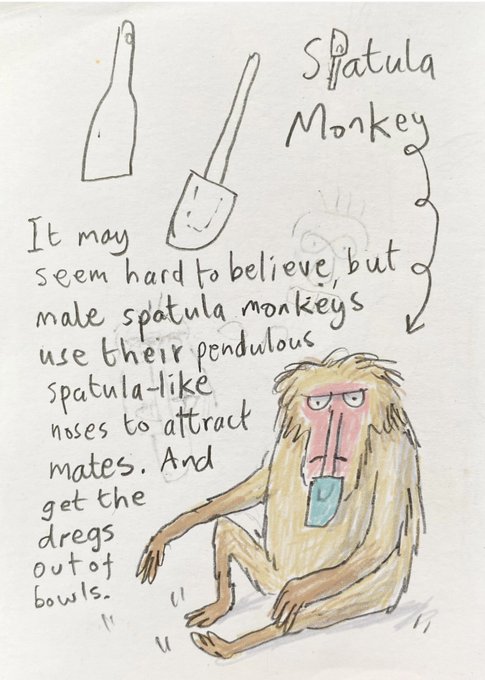 Spatula
Monkey
It may
seem hard to believe, but
male spatula monkeys
use their pendulous
spatula-like
noses to attract
mates. And
get the
dregs
out of
bowls.